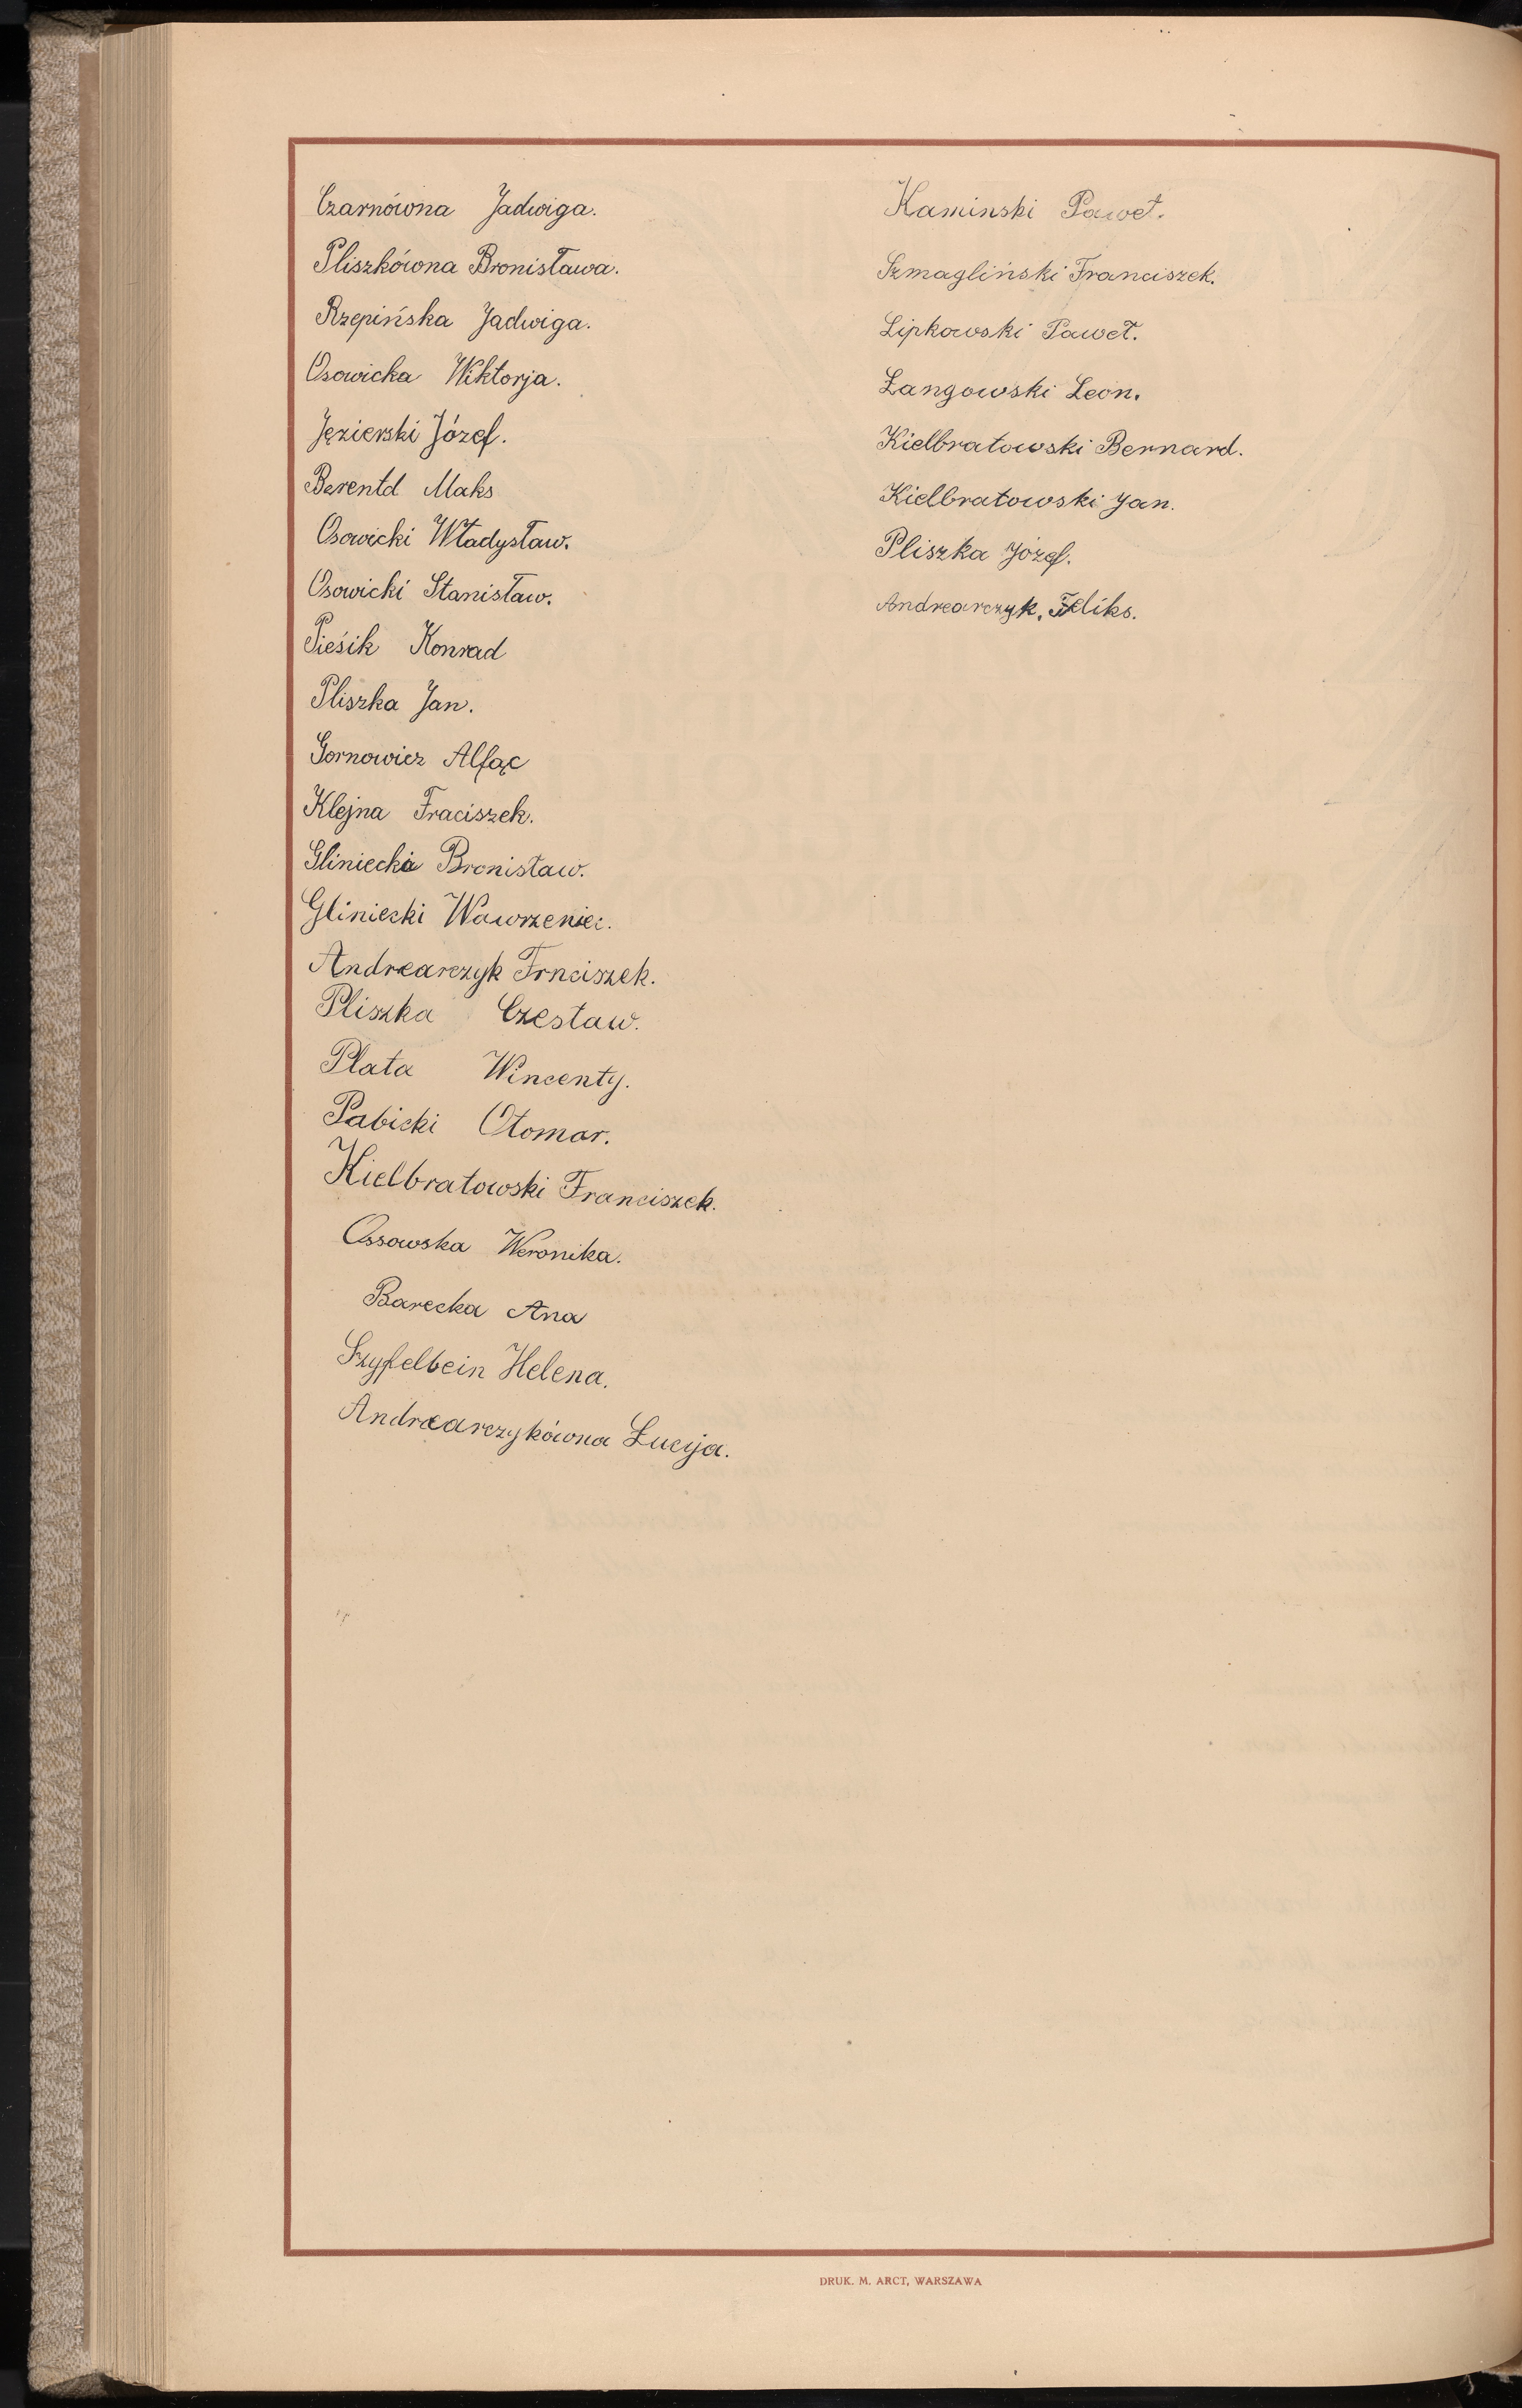 Czarnówna Jadwiga.
Pliszkówna Bronisława.
Rzepińska Jadwiga.
Osowicka Wiktorja.
Jęzierski Józef.
Berentd Maks
Osowicki Władysław.
Osowicki Stanisław.
Pieśik Konrad
Pliszka Jan.
Gornowicz Alfąc
Klejna Fraciszek.
Gliniecki Bronisław.
Gliniecki Wawrzeniec.
Andrearczyk Frnciszek.
Pliszka Czesław.
Plata Wincenty.
Pabicki Otomar.
Kielbratowski Franciszek.
Ossowska Weronika.
Barecka Ana
Szyfelbein Helena.
Andrearczykówna Łucyja.
Kaminski Paweł.
Szmagliński Franciszek.
Lipkowski Paweł.
Łangowski Leon.
Kielbratowski Bernard.
Kielbratowski Jan.
Pliszka Józef.
Andrearczyk, Feliks.
DRUK. M. ARCT, WARSZAWA